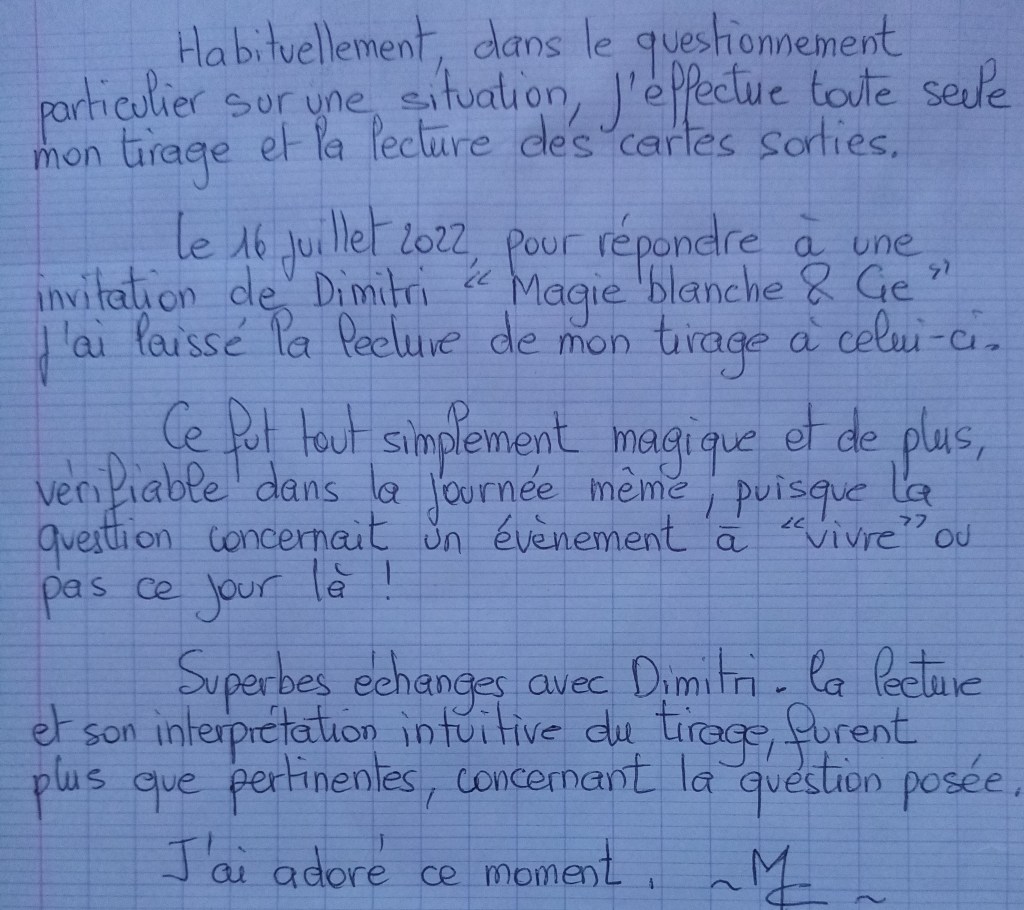 Habituellement, dans le questionnement
particulier sur une situation, j'effectue toute seule
mon tirage et la lecture des cartes sorties.
Le 16 juillet 2022, pour répondre à une
invitation de Dimitri "Magie blanche & Cie"
j'ai laissé la lecture de mon tirage à celui-ci.
Ce fut tout simplement magique et de plus,
vérifiable dans la journée même, puisque la
question concernait un évènement à "vivre" ou
pas ce jour là !
Superbes échanges avec Dimitri. La lecture
et son interprétation intuitive du tirage, furent
plus que pertinentes, concernant la question posée.
J'ai adoré ce moment. ~ M ~